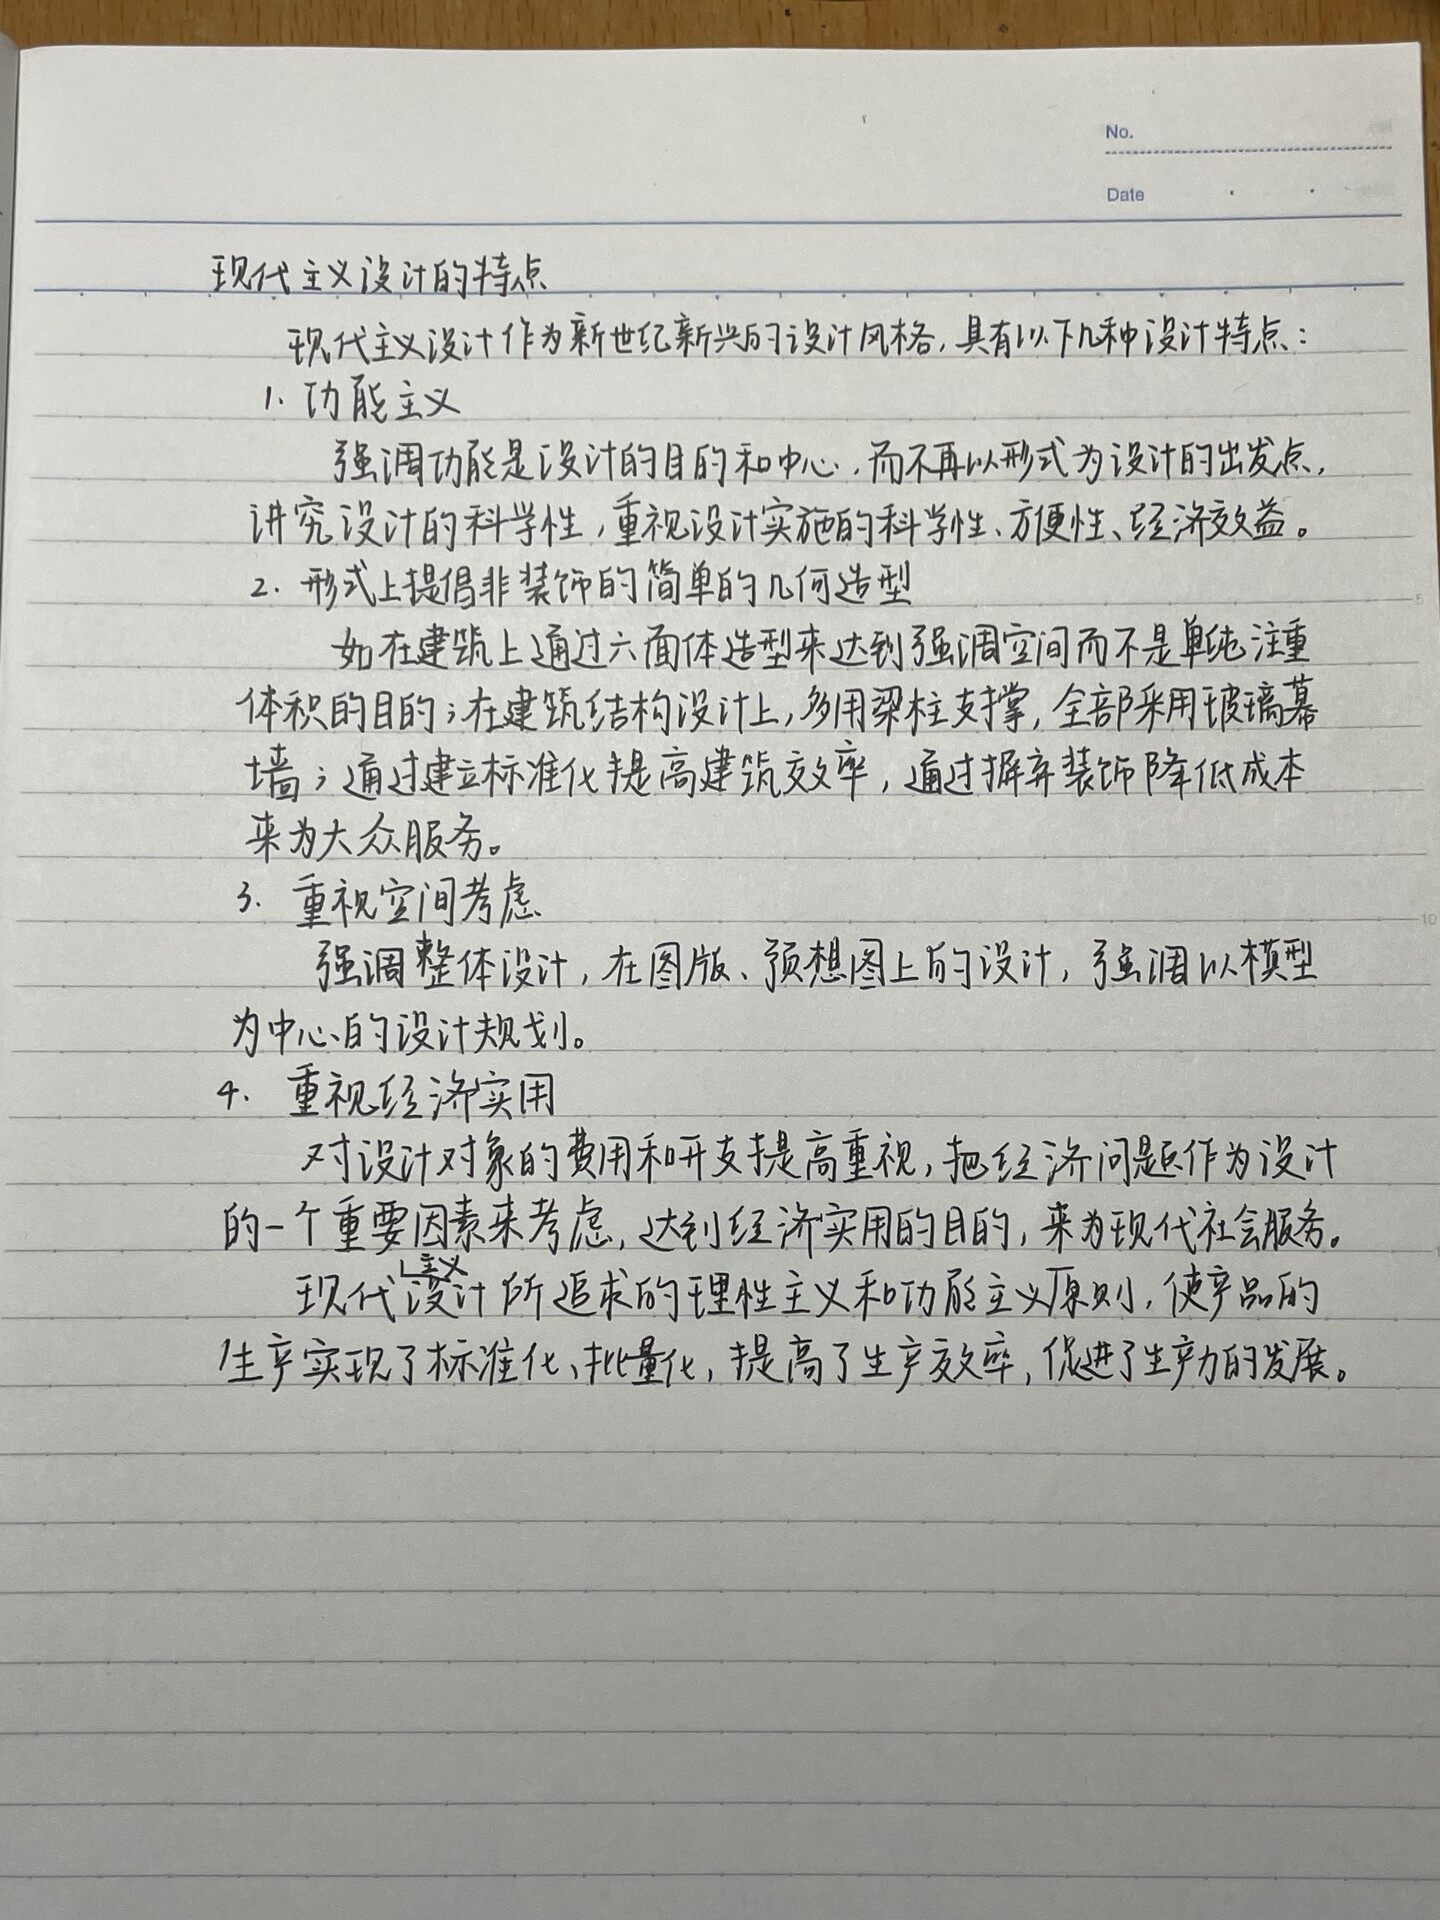 No.
Date
现代主义设计的特点
现代主义设计作为新世纪新兴的设计风格,具有以下几种设计特点:
1. 功能主义
强调功能是设计的目的和中心,而不再以形式为设计的出发点,
讲究设计的科学性,重视设计实施的科学性、方便性、经济效益。
2. 形式上提倡非装饰的简单的几何造型
如在建筑上通过六面体造型来达到强调空间而不是单纯注重
体积的目的;在建筑结构设计上,多用梁柱支撑,全部采用玻璃幕
墙;通过建立标准化提高建筑效率,通过摒弃装饰降低成本
来为大众服务。
5
3. 重视空间考虑
10
强调整体设计,在图版、预想图上的设计,强调以模型
为中心的设计规划。
4. 重视经济实用
对设计对象的费用和开支提高重视,把经济问题作为设计
的一个重要因素来考虑,达到经济实用的目的,来为现代社会服务。
现代主义设计所追求的理性主义和功能主义原则,使产品的
生产实现了标准化、批量化,提高了生产效率,促进了生产力的发展。